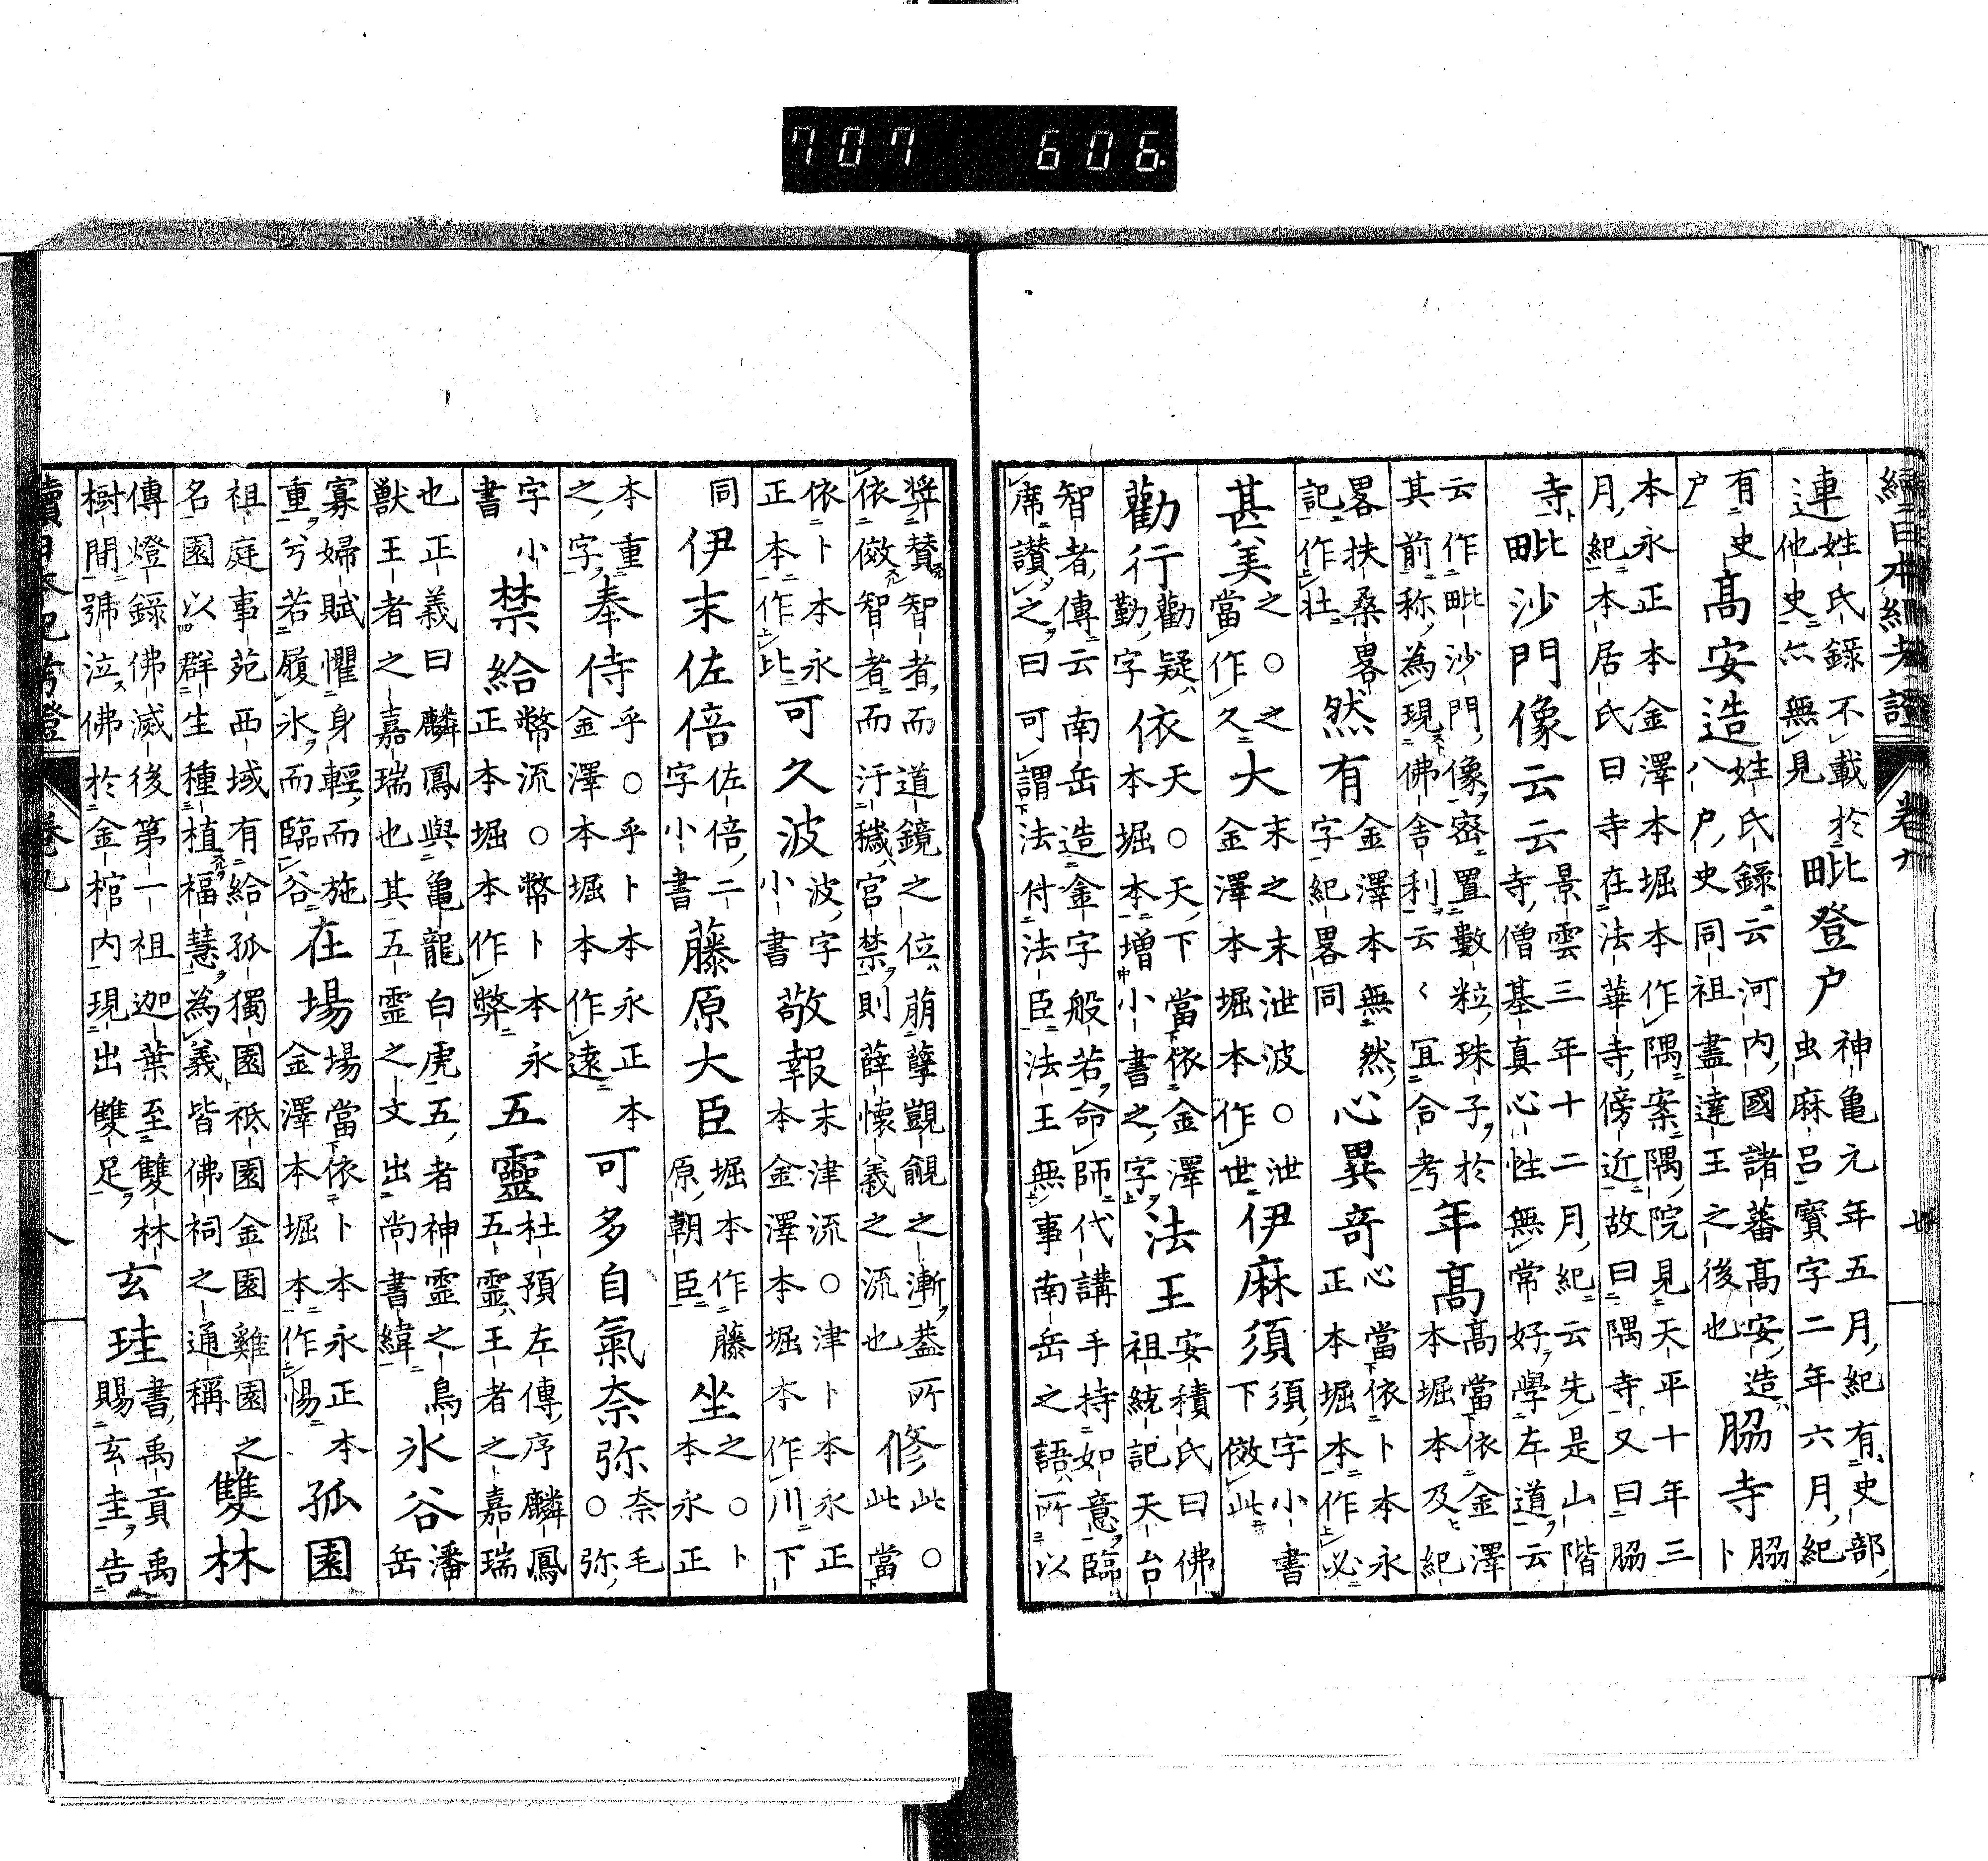 707 606.
續日本紀考證 卷九 七
連姓氏録不載於他史亦無見 毗登戸神亀元年五月紀有史部虫麻呂寳字二年六月紀
有史戸 髙安造姓氏録云河内國諸蕃髙安造八戸史同祖盡達王之後也 脇寺脇卜
本永正本金澤本堀本作隅案隅院見天平十年三月紀本居氏曰寺在法華寺傍近故曰隅寺又曰脇
寺 毗沙門像云云景雲三年十二月紀云先是山階寺僧基真心性無常好學左道云
云作毗沙門像密置數粒珠子於其前称為現佛舎利云〻冝合考 年髙髙當依金澤本堀本及紀
畧扶桑畧記作壮 然有金澤本無然字紀畧同 心異奇心當依卜本永正本堀本作必
甚美之○之當作久 大末之末泄波○泄金澤本堀本作世 伊麻須須字小書下傚此
勸行勸疑勤字 依天○天下當依金澤本堀本増小書之字 法王安積氏曰佛祖統記天台
智者傳云南岳造金字般若命師代講手持如意臨席讃之曰可謂法付法臣法王無事南岳之語所以
奨賛智者而道鏡之位萠孽覬覦之漸蓋所依傚智者而汙穢宮禁則薛懐義之流也 修此○此當
依卜本永正本作比 可久波波字小書 敬報末津流○津卜本永正本金澤本堀本作川下
同 伊末佐倍佐倍二字小書 藤原大臣堀本作藤原朝臣 坐之○卜本永正
本重之字 奉侍乎○乎卜本永正本金澤本堀本作遠 可多自氣奈弥奈毛○弥
字小書 禁給幣流○幣卜本永正本堀本作弊 五靈杜預左傳序麟鳳五靈王者之嘉瑞
也正義曰麟鳳與亀龍白虎五者神靈之鳥獣王者之嘉瑞也其五靈之文出尚書緯 氷谷潘岳
寡婦賦懼身輕而施重兮若履氷而臨谷 在場場當依卜本永正本金澤本堀本作惕 孤園
祖庭事苑西域有給孤獨園祗園金園雞園之名園以群生種植福慧為義皆佛祠之通稱 雙林
傳燈録佛滅後第一祖迦葉至雙林樹間號泣佛於金棺内現出雙足 玄珪書禹貢禹賜玄圭告
續日本紀考證 卷九 八